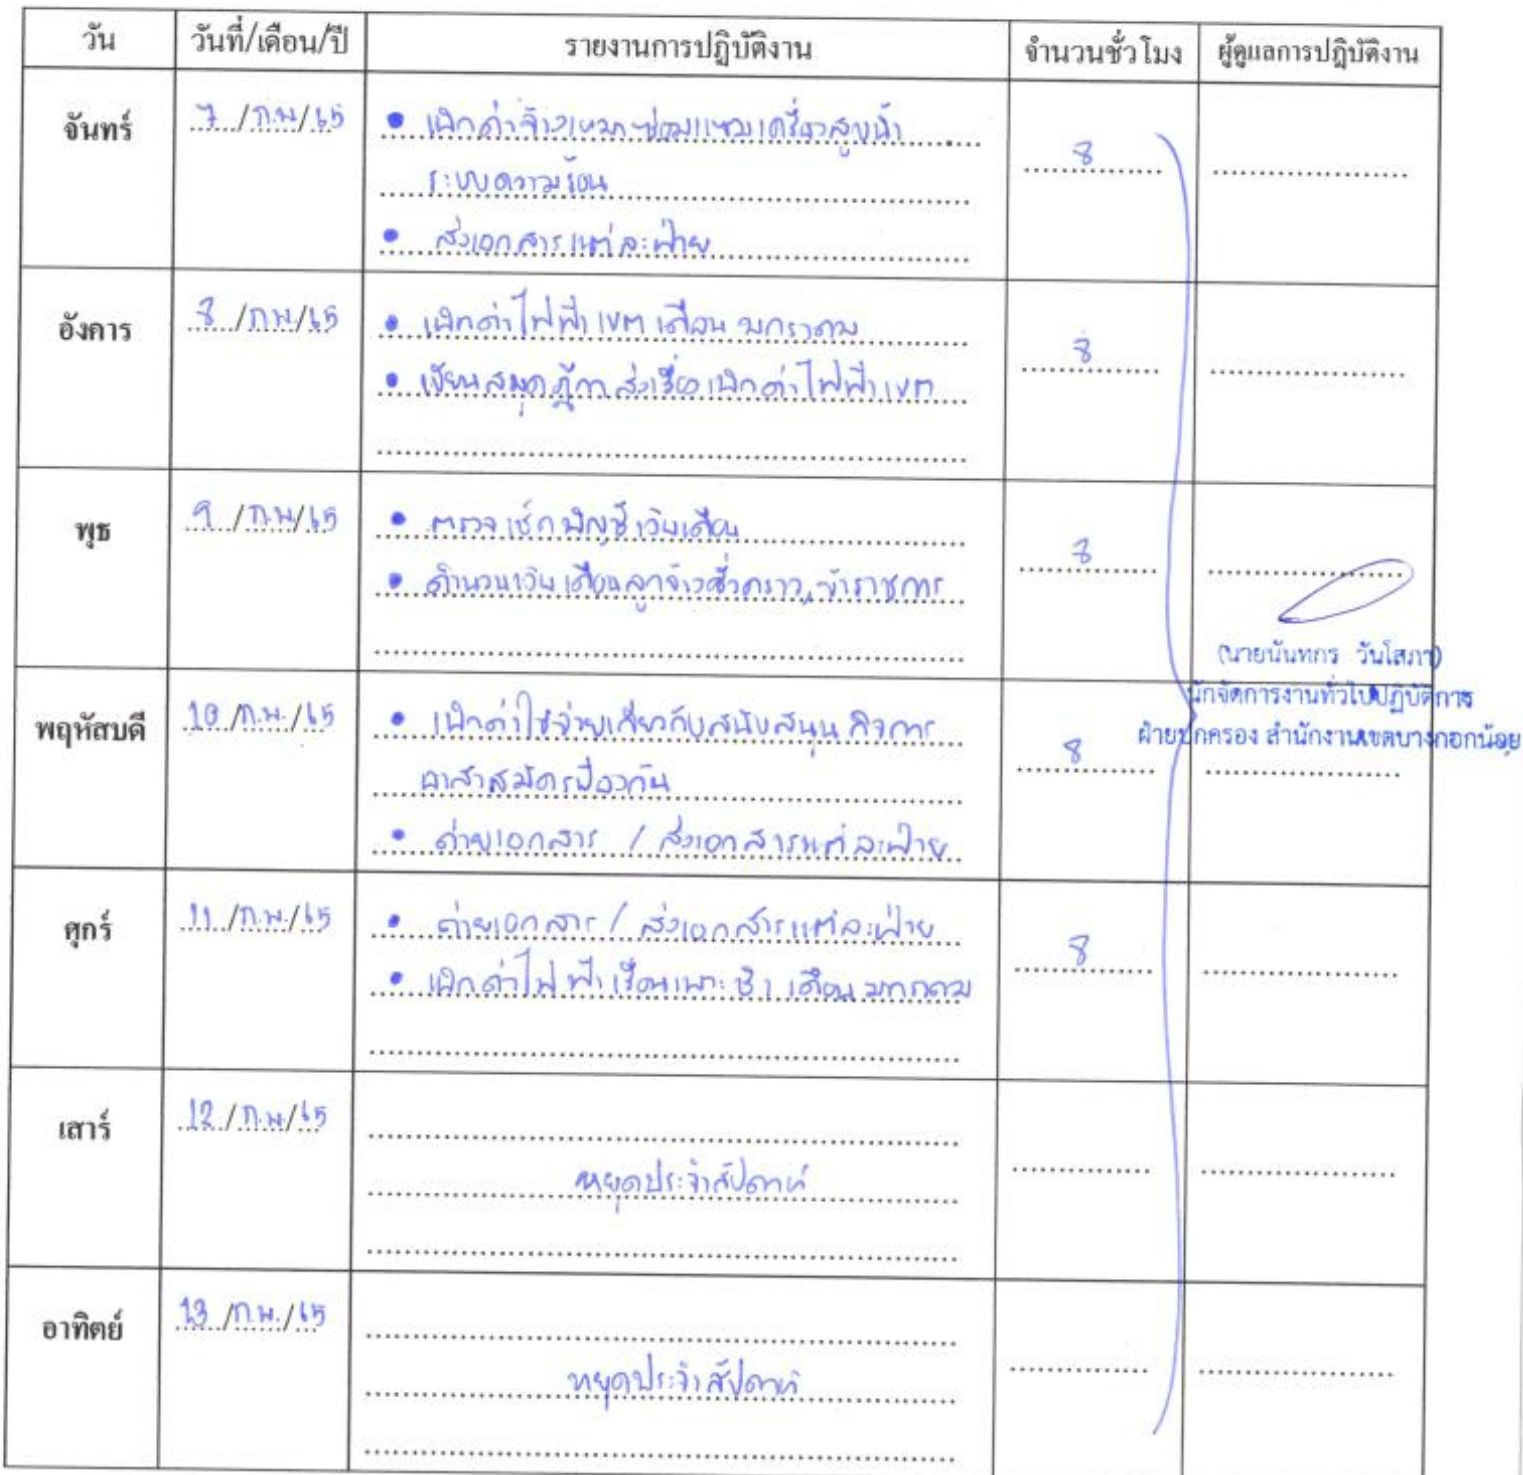 วัน วันที่/เดือน/ปี รายงานการปฏิบัติงาน จำนวนชั่วโมง ผู้ดูแลการปฏิบัติงาน
จันทร์ 7 /ก.พ/65 • เบิกค่าจ้างเหมาซ่อมแซมเครื่องสูบน้ำ
ระบบความร้อน 8
• ส่งเอกสารแต่ละฝ่าย
อังคาร 8 /ก.พ/65 • เบิกค่าไฟฟ้าเขต เดือน มกราคม
• เขียนสมุดฎีกา ส่งเรื่อง เบิกค่าไฟฟ้าเขต 8
พุธ 9 /ก.พ/65 • ตรวจเช็กบัญชีเงินเดือน
• คำนวนเงินเดือนลูกจ้างชั่วคราว, ข้าราชการ 8
(นายนันทกร วันโสภา)
นักจัดการงานทั่วไปปฏิบัติการ
ฝ่ายปกครอง สำนักงานเขตบางกอกน้อย
พฤหัสบดี 10 /ก.พ./65 • เบิกค่าใช้จ่ายเกี่ยวกับสนับสนุน กิจการ
อาสาสมัครป้องกัน 8
• ถ่ายเอกสาร / ส่งเอกสารแต่ละฝ่าย
ศุกร์ 11 /ก.พ./65 • ถ่ายเอกสาร / ส่งเอกสารแต่ละฝ่าย
• เบิกค่าไฟฟ้า เรือนเพาะชำ เดือน 8
เสาร์ 12 /ก.พ/65
หยุดประจำสัปดาห์
อาทิตย์ 13 /ก.พ./65
หยุดประจำสัปดาห์